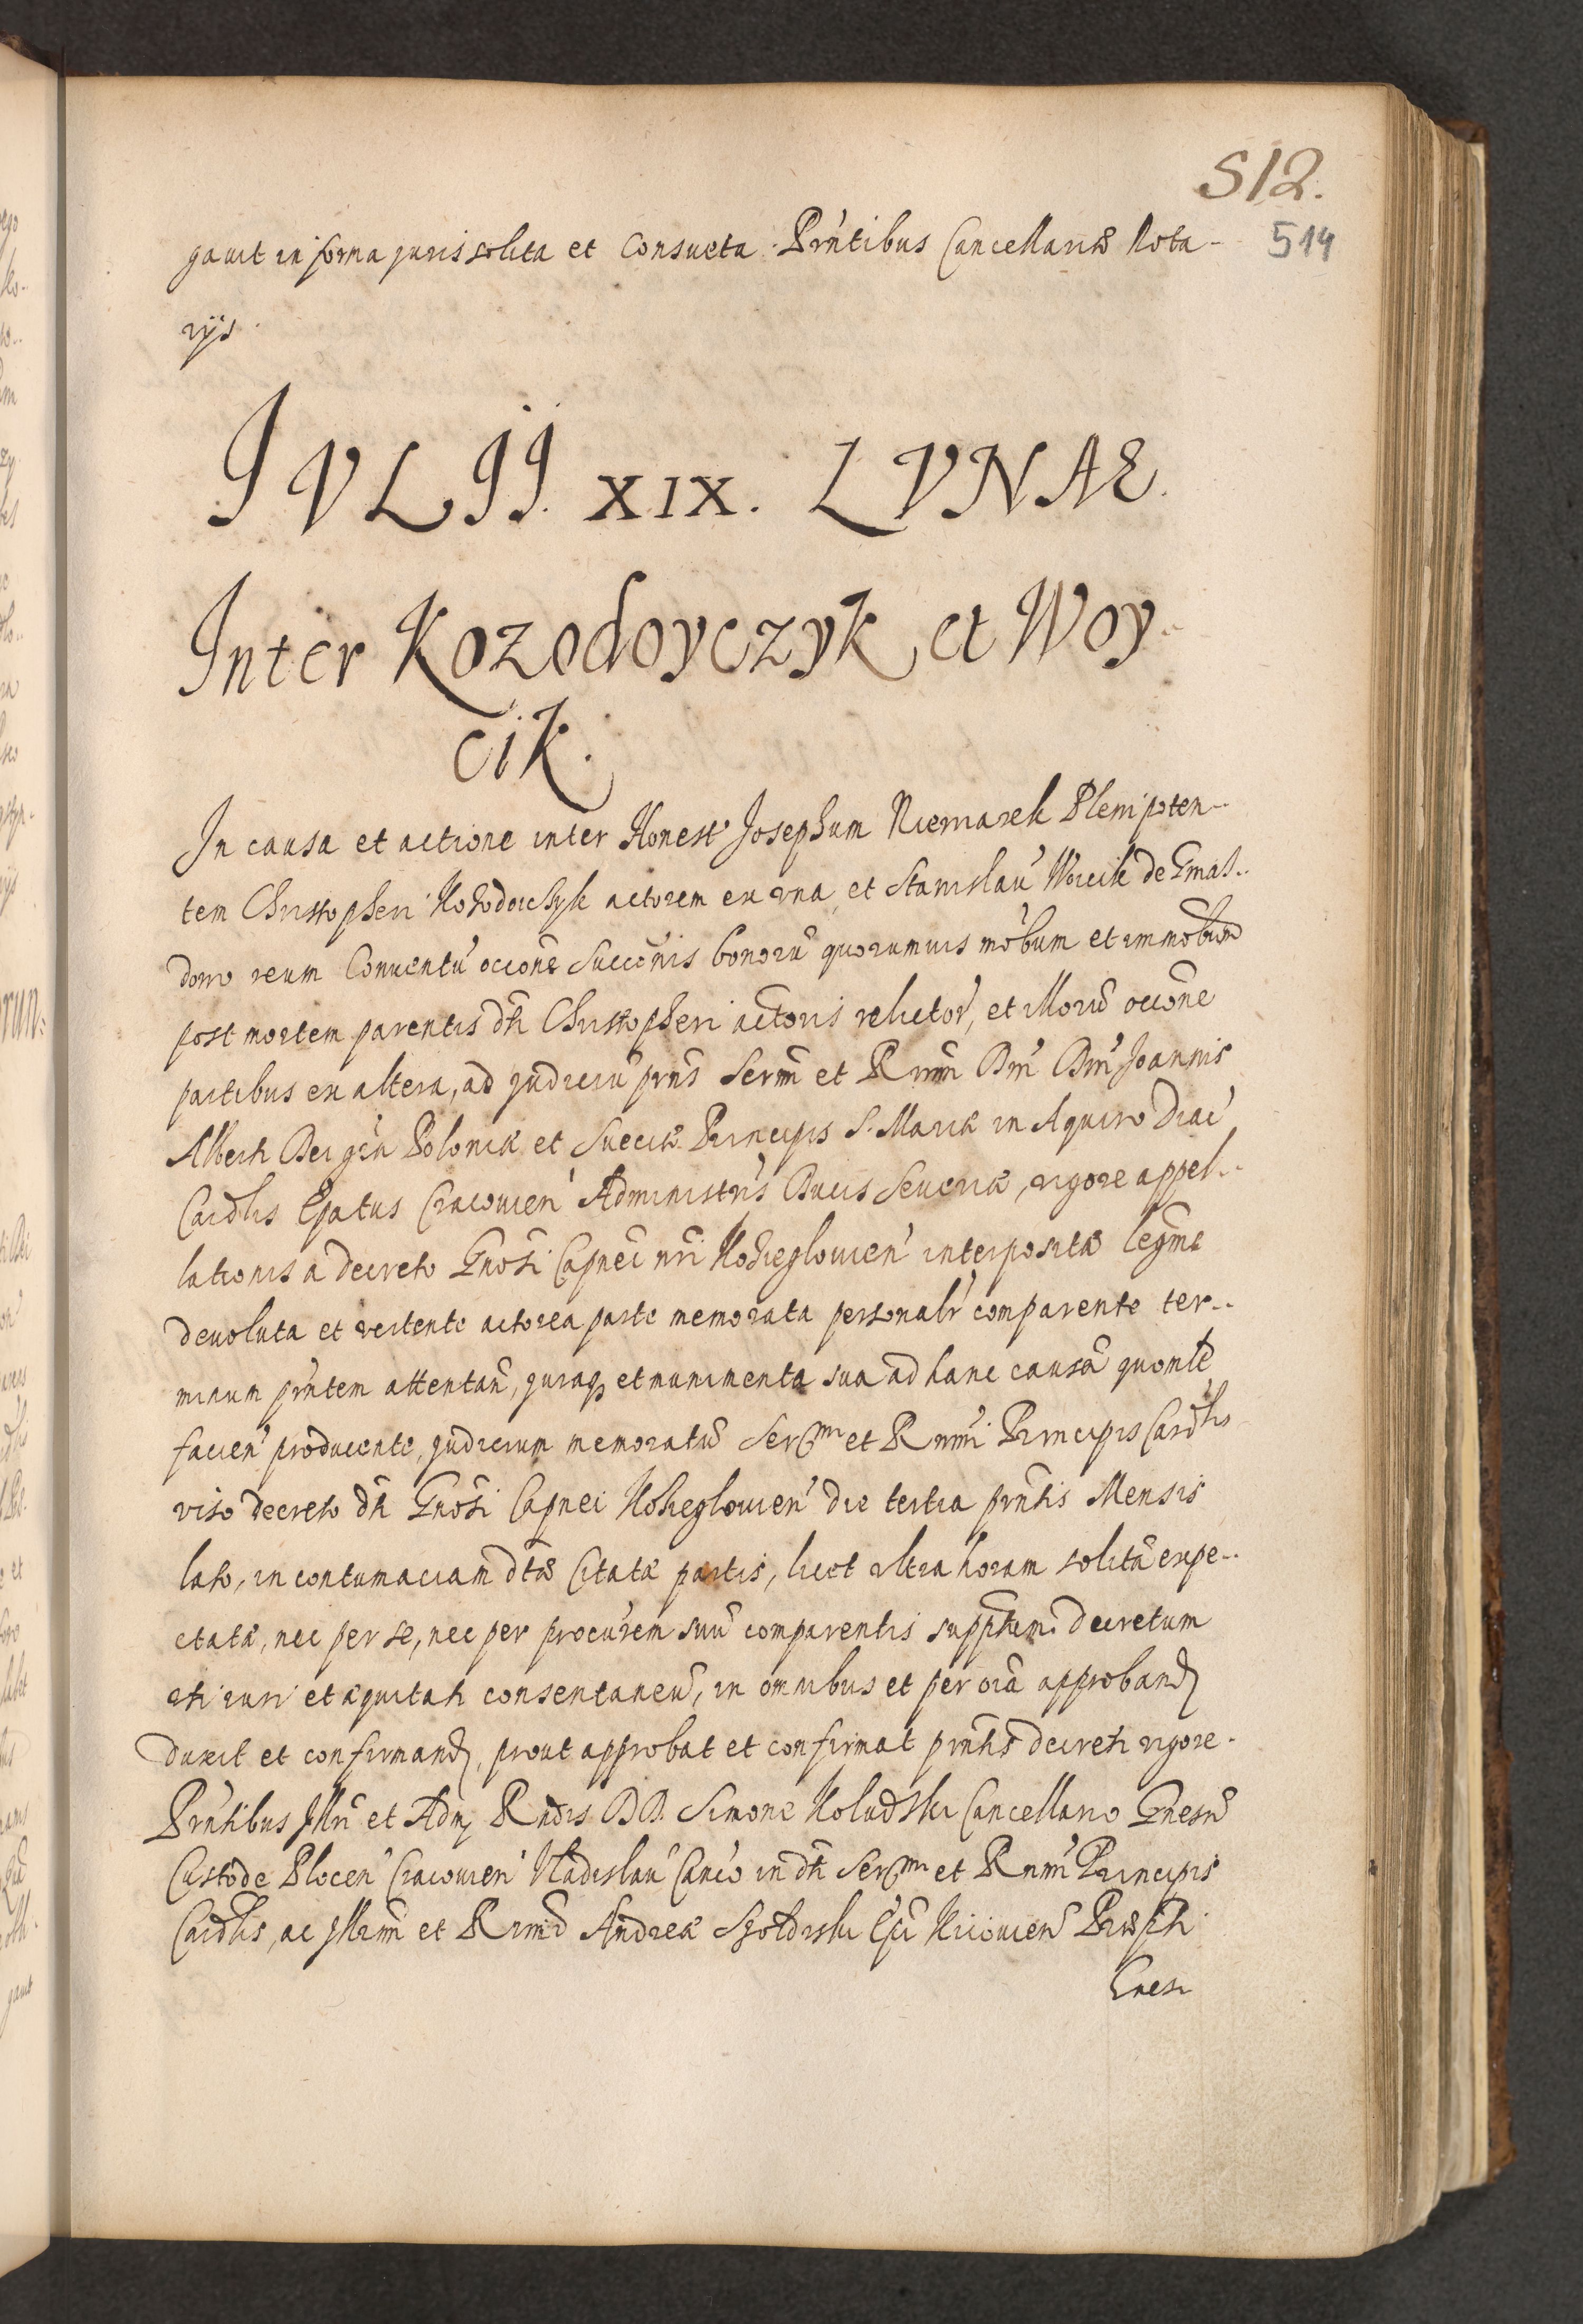 512.
514
gauit in forma juris solita et consueta. Pr̃ntibus Cancellariæ Nota-
rijs.
IVLII. XIX. LVNAE.
Inter Kozodoyczyk et Woy-
cik.
In causa et actione inter Honest' Josephum Niemarek Plenipoten-
tem Christopheri Kozodoiczyk actorem ex vna, et Stanislau' Woicik de
domo reum Conuentu' occõne Succõnis bonorũ quorumuis mobum et immobium
post mortem parentis dti Christopheri actoris relictor', et illorũ occõne
partibus ex altera, ad judiciũ prñs Sermi et Rmmi Dni' Dni' Joannis
Alberti Dei grã Poloniæ et Sueciæ Principis S. Mariæ in Aquiro Diac'
Cardlis Epatus Cracouien' Administris Ducis Seueriæ, vigore appel-
lationis a decreto Gñosi Capnei nri Kozieglouien' interpositæ legme
deuoluta et vertente actorea parte memorata personalr' comparente ter-
minum prñtem attentañ, juraq₃ et munimenta sua ad hanc causã
facien' producente, judicium memoratũ Sermi et Rmmi Principis Cardlis
viso decreto dti Gñosi Capnei Kozieglouien' die tertia prñtis Mensis
lato, in contumaciam dtæ Citatæ partis, licet vltra horam solitã expe-
ctatæ, nec per se, nec per procurem suũ comparentis decretum
vti iuri et æquitati consentaneũ, in omnibus et per oia approband
duxit et confirmand, prout approbat et confirmat prñtis decreti vigore.
Prñtibus Illri et Adm Rndis DD. Simone Koludzki Cancellario Gnesñ
Custode Plocen' Cracouien' Vladislau' Canco in dti Sermi et Rmmi Principis
Cardlis, ac Illrmi et Rmi D Andreæ Szołdrski Epi Kiiouien' Præpti
Gnesn